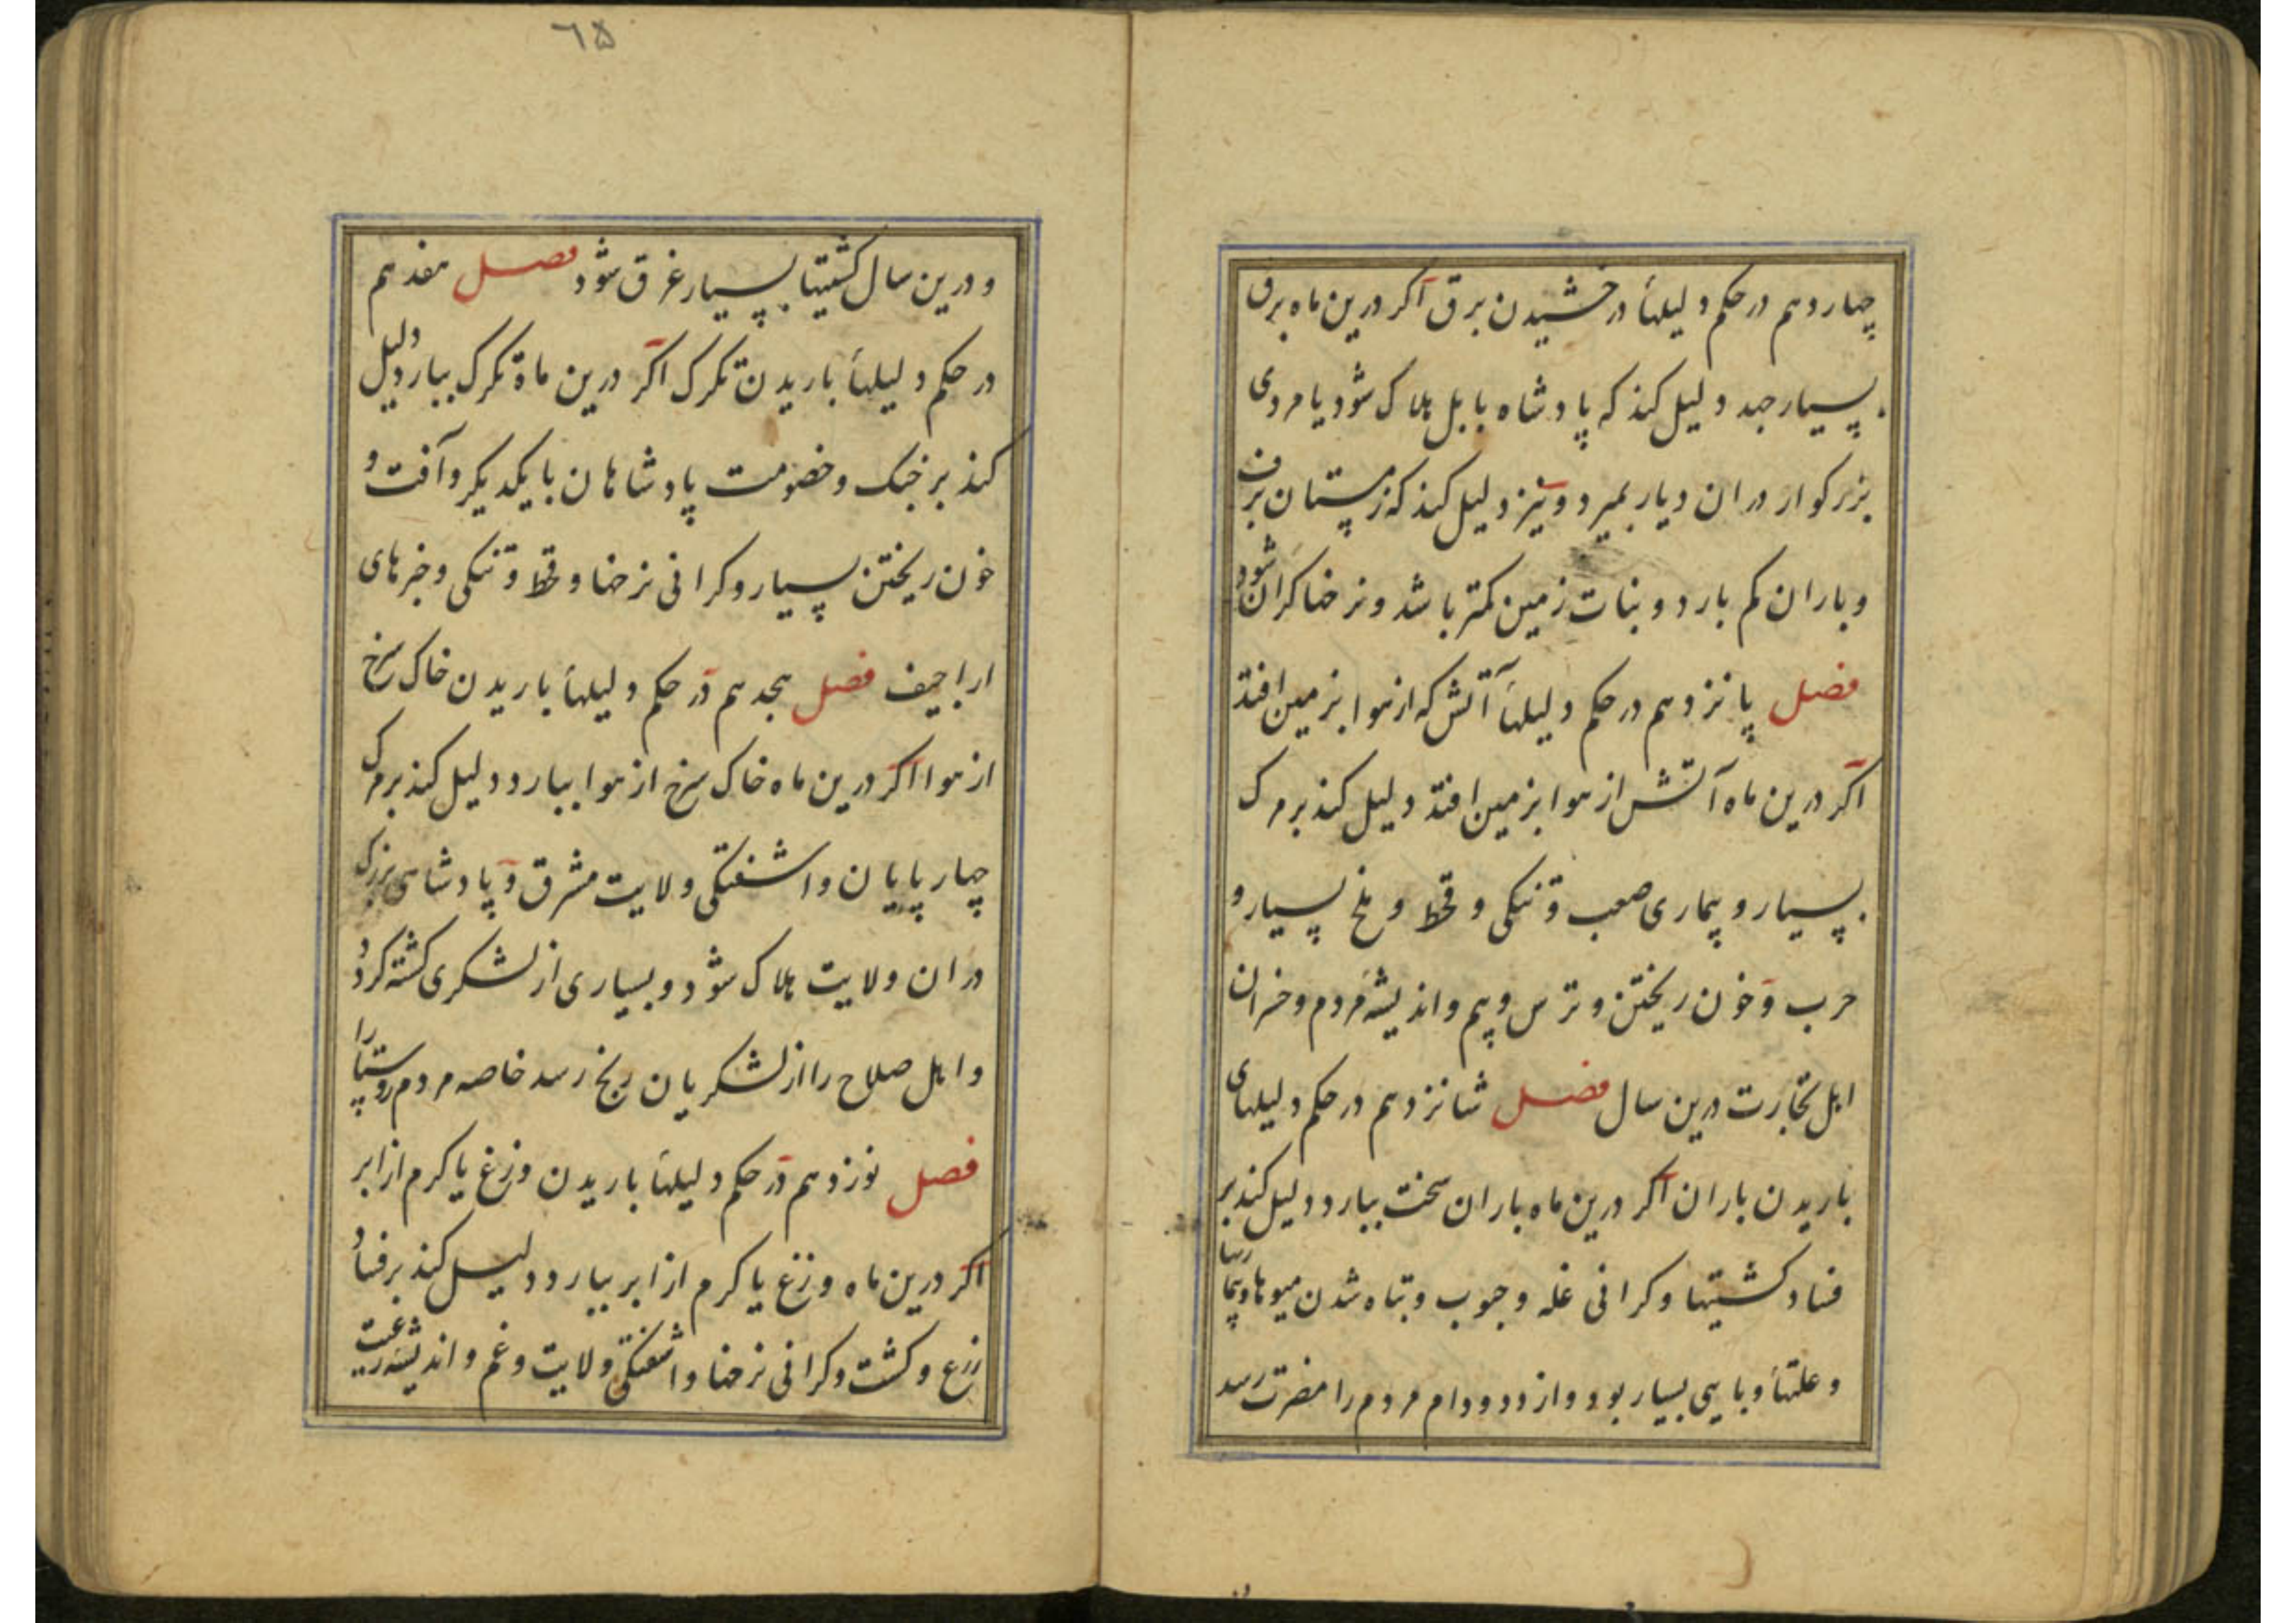 چهاردهم در حکم دلیلهأ درخشیدن برق اکر درین ماه برق
بسیار جهد دلیل کند که پادشاه بابل هلاک شود یا مردی
بزرکوار در ان دیار بمیرد و نیز دلیل کند که زمستان برف
و باران کم بارد و نبات زمین کمتر باشد و نرخها کران شود
فصل پانزدهم در حکم دلیلهأ آتش که از هوا بزمین افتد
اکر درین ماه آتش از هوا بزمین افتد دلیل کند بر مرک
بسیار و بیماری صعب و تنکی و قحط و ملخ بسیار و
حرب و خون ریختن و ترس و بیم و اندیشه مردم و خسران
اهل تجارت درین سال فصل شانزدهم در حکم دلیلهای
باریدن باران اکر درین ماه باران سخت ببارد دلیل کند بر
فساد کشتیها و کرانی غله و حبوب و تباه شدن میوها و بیماریها
و علتهأ وبایی بسیار بود و از دد و دام مردم را مضرت رسد
٦۵
و درین سال کشتیها بسیار غرق شود فصل هفدهم
در حکم دلیلهأ باریدن تکرک اکر درین ماه تکرک ببارد دلیل
کند بر جنک و خصومت پادشاهان با یکدیکر و آفت و
خون ریختن بسیار و کرانی نرخها و قحط و تنکی و خبرهای
اراجیف فصل هجدهم در حکم دلیلهأ باریدن خاک سرخ
از هوا اکر درین ماه خاک سرخ از هوا ببارد دلیل کند بر مرک
چهارپایان و اشفتکی ولایت مشرق و پادشاهی بزرک
در ان ولایت هلاک شود و بسیاری از لشکری کشته کردد
و اهل صلاح را از لشکریان رنج رسد خاصه مردم روستا را
فصل نوزدهم در حکم دلیلهأ باریدن وزغ یا کرم از ابر
اکر درین ماه وزغ یا کرم از ابر ببارد دلیل کند بر فساد
زرع و کشت و کرانی نرخها و اشفتکی ولایت و غم و اندیشه رعیت